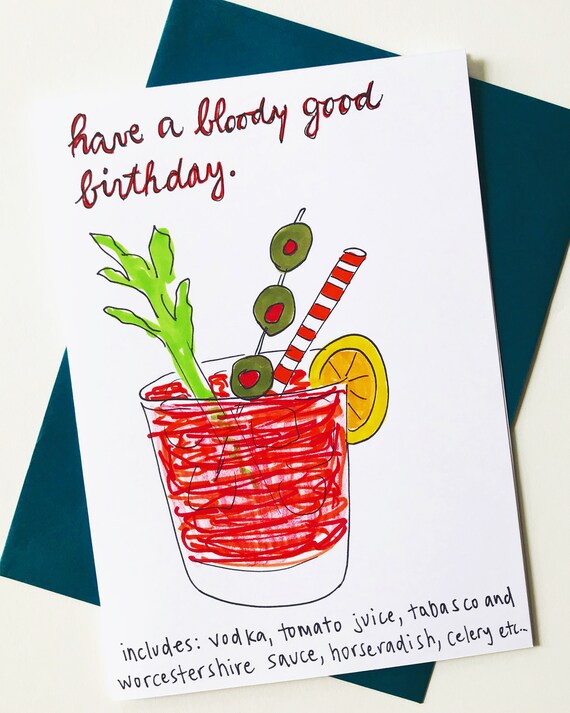 have a bloody good
birthday.
includes: vodka, tomato juice, tabasco and
worcestershire sauce, horseradish, celery etc..